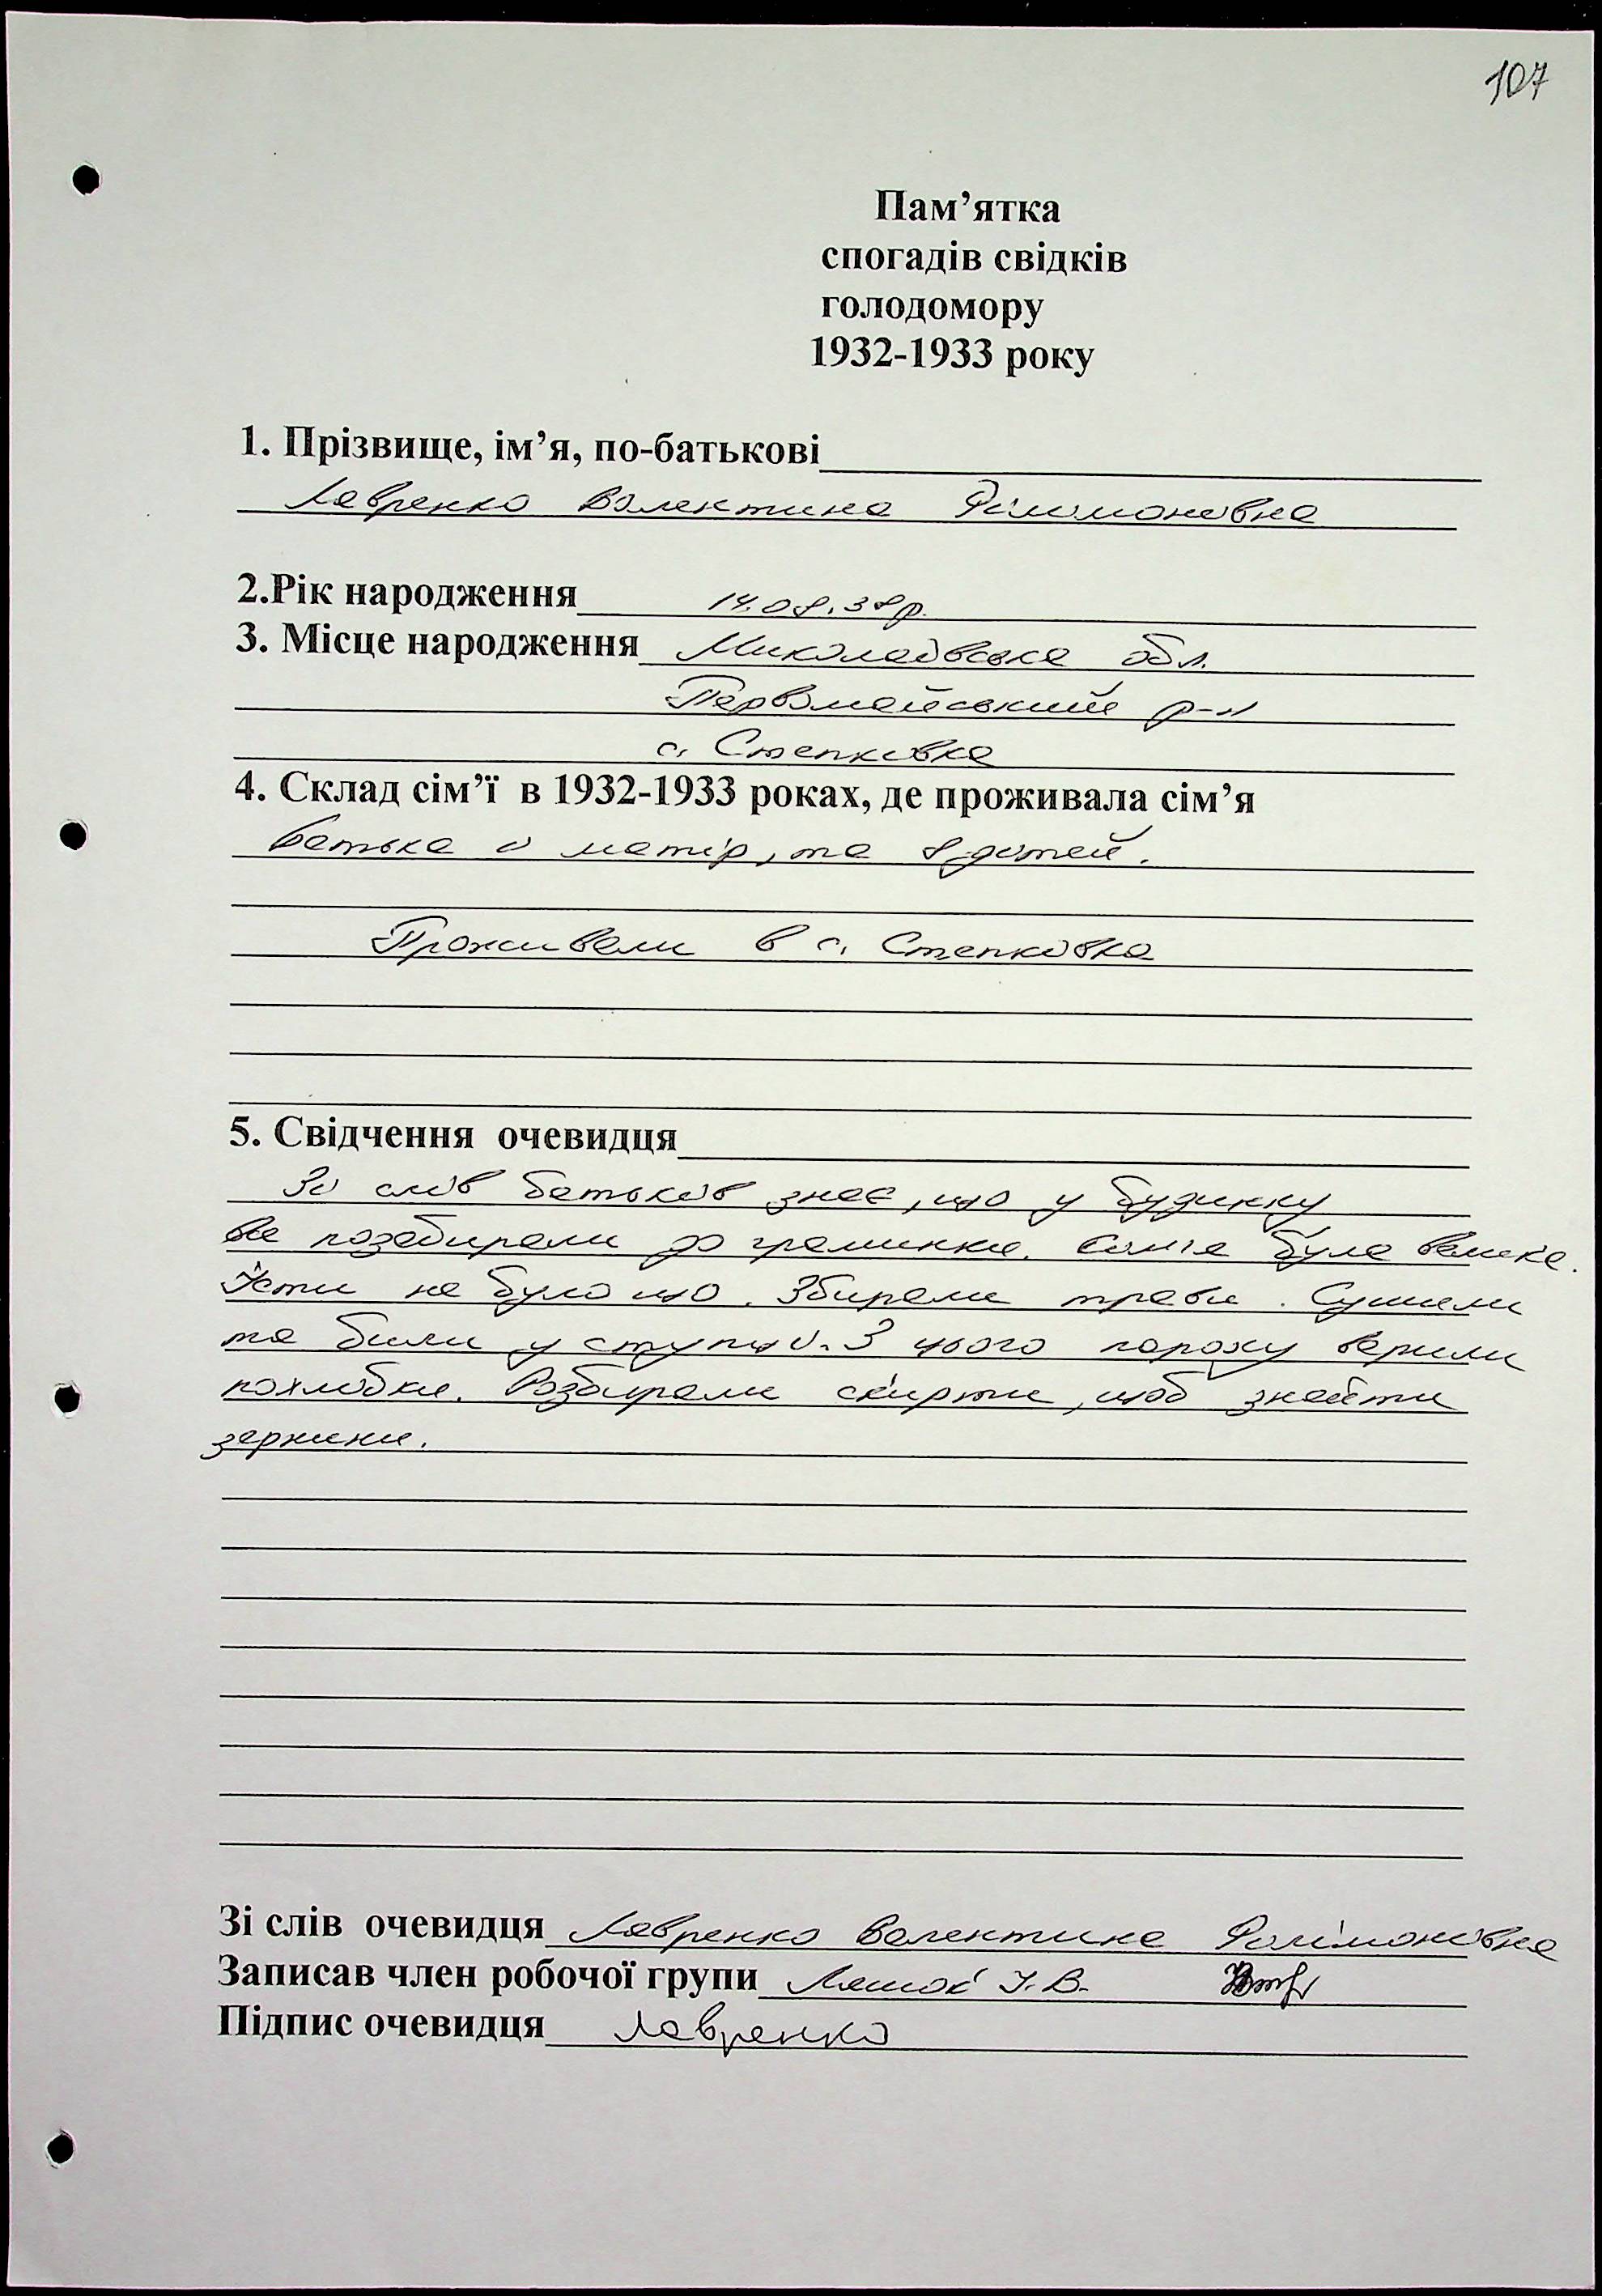 107
Пам’ятка
спогадів свідків
голодомору
1932-1933 року
1. Прізвище, ім’я, по-батькові
Лавренко Валентина Філімоновна
2.Рік народження 14.08.38р.
3. Місце народження Миколаївська обл.
Первомайський р-н
с. Степківка
4. Склад сім’ї в 1932-1933 роках, де проживала сім’я
батька і матір, та 8 дітей.
Проживали в с. Степківка
5. Свідчення очевидця
Зі слів батьків знає, що у будинку
все позабирали до граминки. Сім'я була велика.
Їсти не було що. Збирали трави. Сушили
та били у ступці. З цього пороху варили
похлібки. Розбирали скирти, щоб знайти
зернини.
Зі слів очевидця Лавренко Валентина Філімоновна
Записав член робочої групи І.В.
Підпис очевидця Лавренко